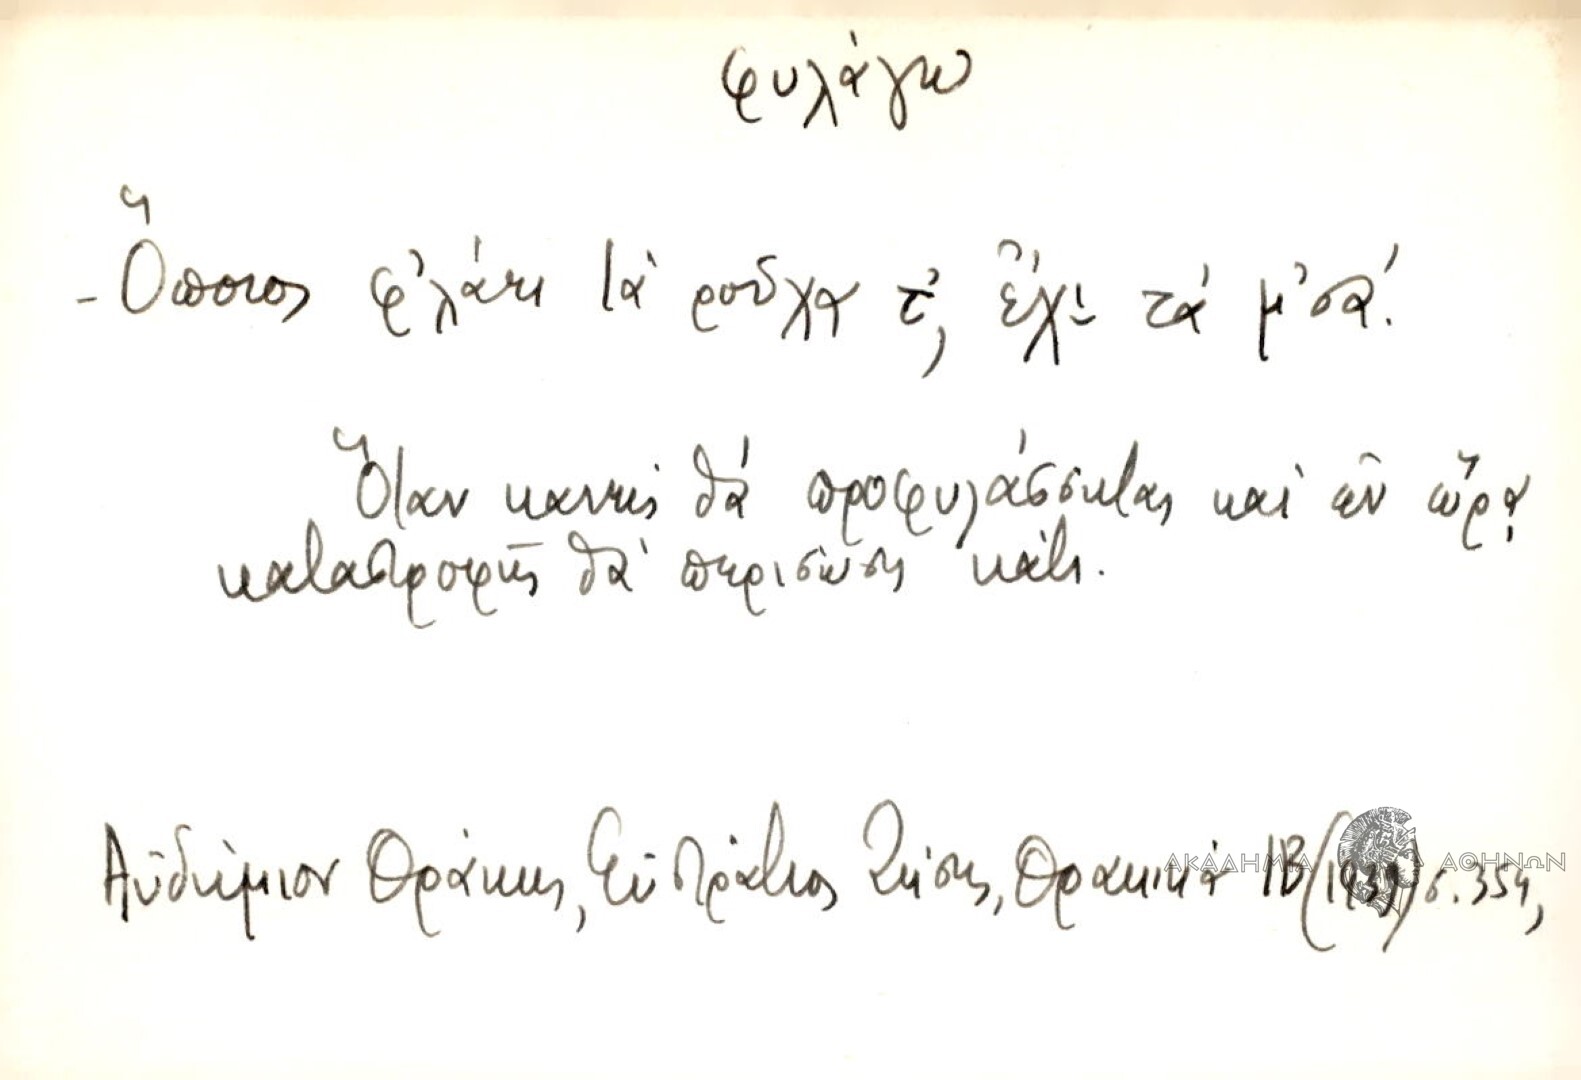 φυλάγω
- Ὅποιος φ'λάει τὰ ροῦχα τ', ἔχι τὰ μ'σά.
Ὅταν κανεὶς θὰ προφυλάσσεται καὶ ἐν ὥρᾳ
καταστροφῆς θὰ περισώσῃ κάτι.
Αὐδήμιον Θράκης, Εὐστράτιος Ζήσης, Θρακικά ΙΒ (1939) σ. 354,
ΑΚΑΔΗΜΙΑ ΑΘΗΝΩΝ